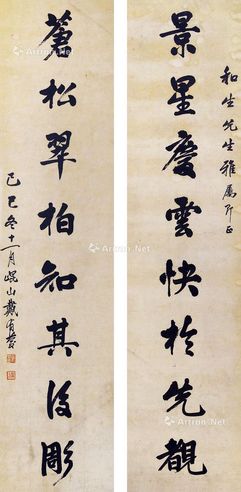 和生先生雅属即正
景星庆雲快於先覩
蒼松翠柏知其後彫
己巳冬十一月崐山戴有
Artron.Net
Artron.Net